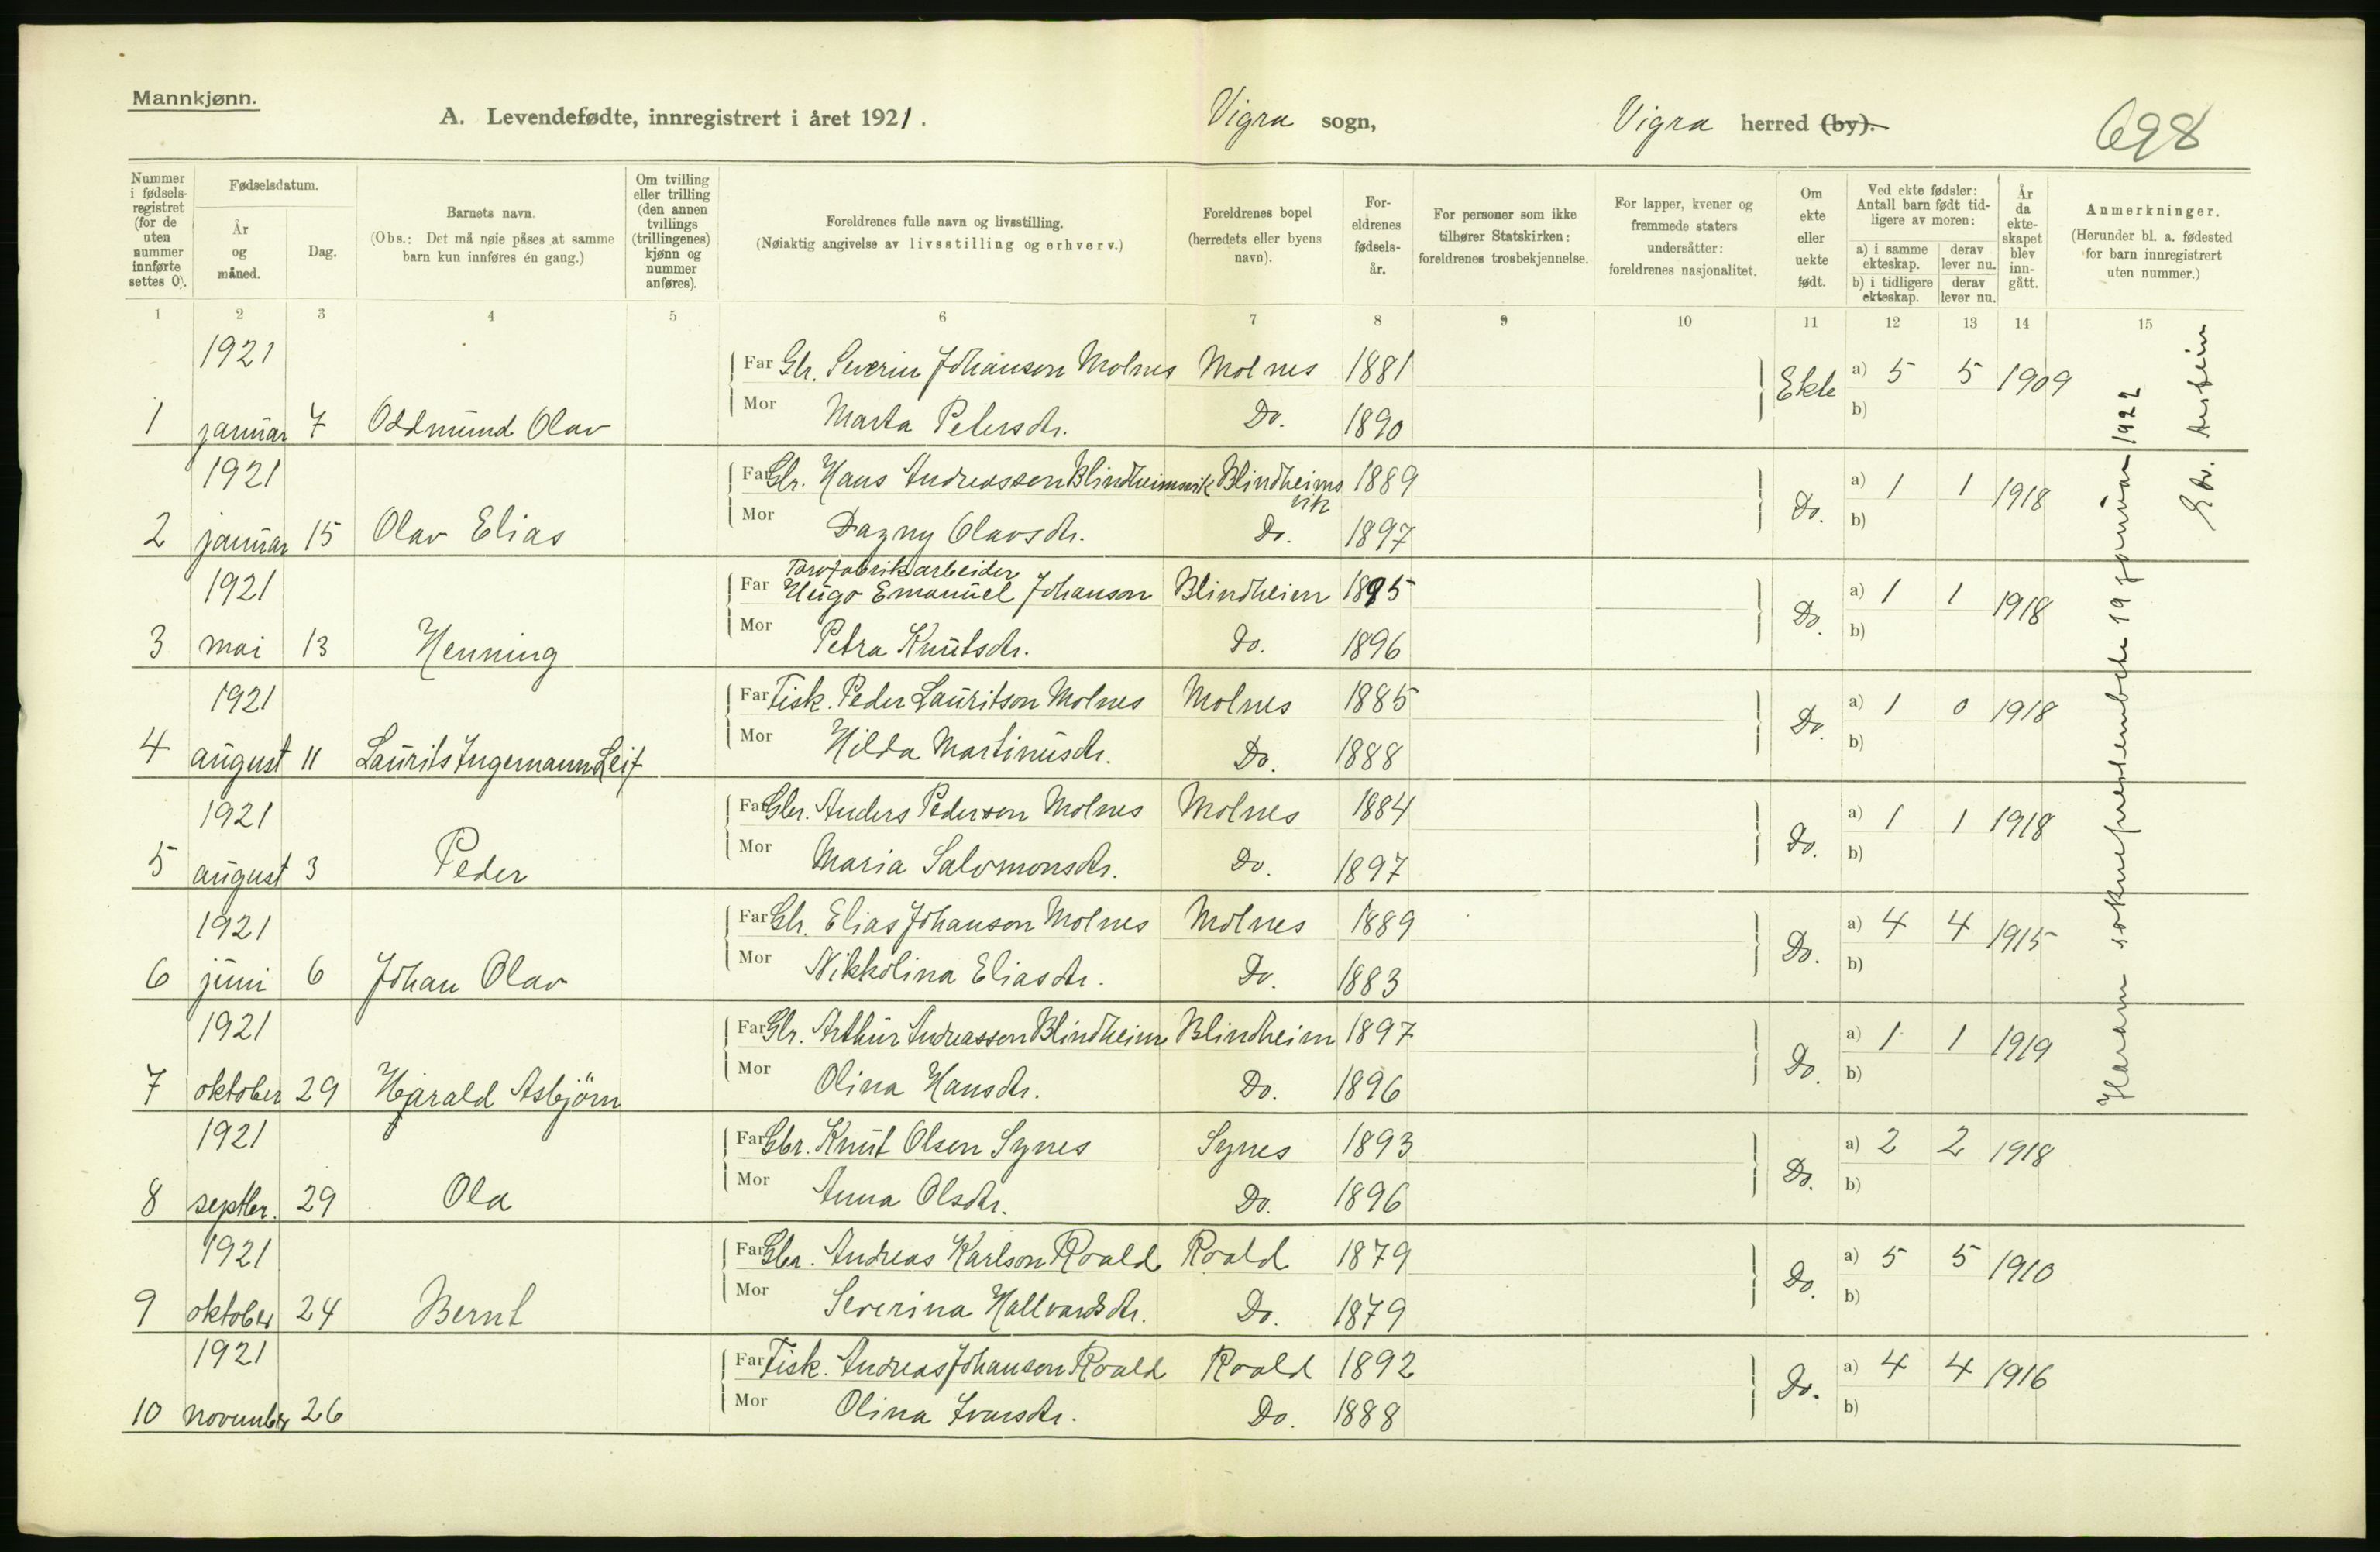 Mannkjønn.
A. Levendefødte, innregistrert i året 1921.
Vigra sogn,
Vigra herred (by).
698
Nummer i fødsels- registret (for de uten nummer innførte settes 0).
Fødselsdatum.
År og måned.
Dag.
Barnets navn.
(Obs.: Det må nøie påses at samme barn kun innføres én gang.)
Om tvilling eller trilling (den annen tvillings (trillingenes) kjønn og nummer anføres).
Foreldrenes fulle navn og livsstilling.
(Nøiaktig angivelse av livsstilling og erhverv.)
Foreldrenes bopel (herredets eller byens navn).
For- eldrenes fødsels- år.
For personer som ikke tilhører Statskirken: foreldrenes trosbekjennelse.
For lapper, kvener og fremmede staters undersåtter: foreldrenes nasjonalitet.
Om ekte eller uekte født.
Ved ekte fødsler: Antall barn født tid- ligere av moren:
a) i samme ekteskap. derav lever nu.
b) i tidligere ekteskap. derav lever nu.
År da ekte- skapet blev inn- gått.
Anmerkninger.
(Herunder bl. a. fødested for barn innregistrert uten nummer.)
1 2 3 4 5 6 7 8 9 10 11 12 13 14 15
1921 Far Gbr. Severin Johanson Molnes Molnes 1881 Ekte a) 5 5 1909
1 januar 7 Oddmund Olav Mor Marta Petersdtr. Do. 1890 b)
1921 Far Gbr. Hans Andreassen Blindheimsvik Blindheimsvik 1889 Do. a) 1 1 1918
2 januar 15 Olav Elias Mor Dagny Olavsdtr. Do. 1897 b)
Tarefabrikarbeider
1921 Far Hugo Emanuel Johanson Blindheim 1895 Do. a) 1 1 1918
3 mai 13 Henning Mor Petra Knutsdtr. Do. 1896 b)
1921 Far Fisk. Peder Lauritson Molnes Molnes 1885 Do. a) 1 0 1918
4 august 11 Laurits Ingemann Leif Mor Hilda Martinusdtr. Do. 1888 b)
1921 Far Gbr. Anders Pederson Molnes Molnes 1884 Do. a) 1 1 1918
5 august 3 Peder Mor Maria Salomonsdtr. Do. 1897 b)
1921 Far Gbr. Elias Johanson Molnes Molnes 1889 Do. a) 4 4 1915
6 juni 6 Johan Olav Mor Nikkolina Eliasdtr. Do. 1883 b)
1921 Far Gbr. Arthur Andreassen Blindheim Blindheim 1897 Do. a) 1 1 1919
7 oktober 29 Harald Asbjörn Mor Olina Hansdtr. Do. 1896 b)
1921 Far Gbr. Knut Olsen Synes Synes 1893 Do. a) 2 2 1918
8 septbr. 29 Ola Mor Anna Olsdtr. Do. 1896 b)
1921 Far Gbr. Andreas Karlson Roald Roald 1879 Do. a) 5 5 1910
9 oktober 24 Bernt Mor Severina Hallvardsdtr. Do. 1879 b)
1921 Far Fisk. Andreas Johanson Roald Roald 1892 Do. a) 4 4 1916
10 november 26 Mor Olina Ivarsdtr. Do. 1888 b)
Haram sokneprestembede 19 januar 1922